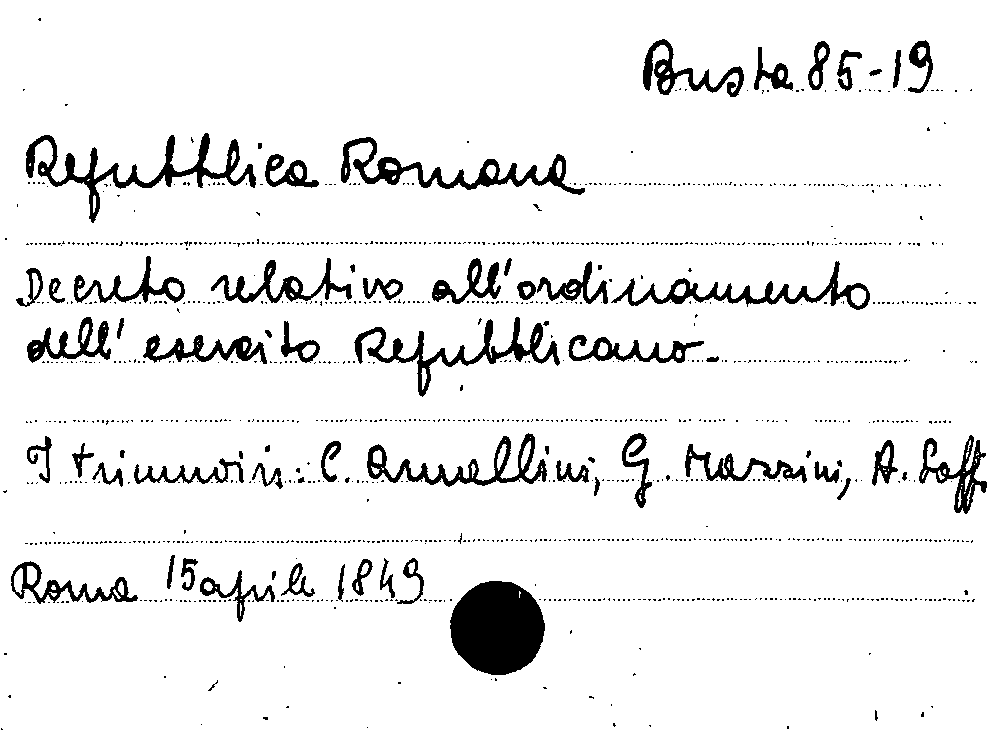 Busta 85-19
Repubblica Romana
Decreto relativo all'ordinamento
dell'esercito Repubblicano.
I triumviri: C. Armellini, G. Mazzini, A. Saffi
Roma 15 aprile 1849